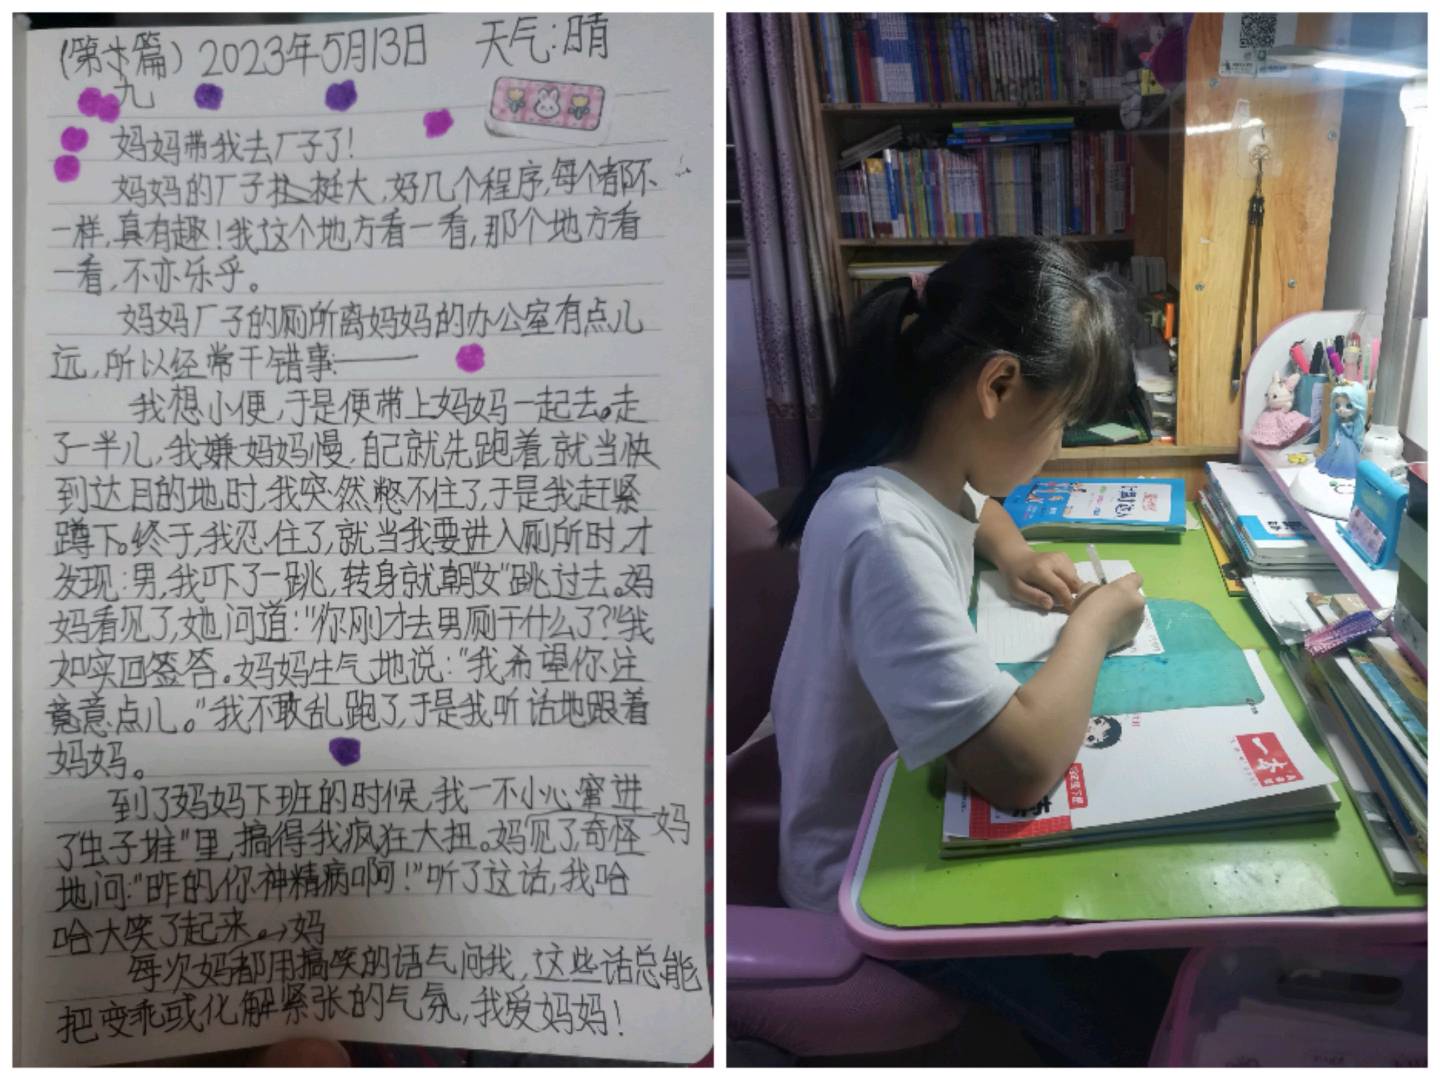 (第九篇) 2023年5月13日 天气:晴
妈妈带我去厂子了!
妈妈的厂子挺大,好几个程序,每个都不
一样,真有趣!我这个地方看一看,那个地方看
一看,不亦乐乎。
妈妈厂子的厕所离妈妈的办公室有点儿
远,所以经常干错事:——
我想小便,于是便带上妈妈一起去。走
了一半儿,我嫌妈妈慢,自己就先跑着,就当快
到达目的地时,我突然憋不住了,于是我赶紧
蹲下。终于,我忍住了,就当我要进入厕所时,才
发现:男,我吓了一跳,转身就朝“女”跳过去。妈
妈看见了,她问道:“你刚才去男厕干什么了?”我
如实回答。妈妈生气地说:“我希望你注
意点儿。”我不敢乱跑了,于是我听话地跟着
妈妈。
到了妈妈下班的时候,我一不小心窜进
了“虫子堆”里,搞得我疯狂大扭。妈妈见了奇怪
地问:“咋的你神精病啊!”听了这话,我哈
哈大笑了起来。
每次妈妈都用搞笑的语气问我,这些话总能
把变乖或化解紧张的气氛,我爱妈妈!
一本